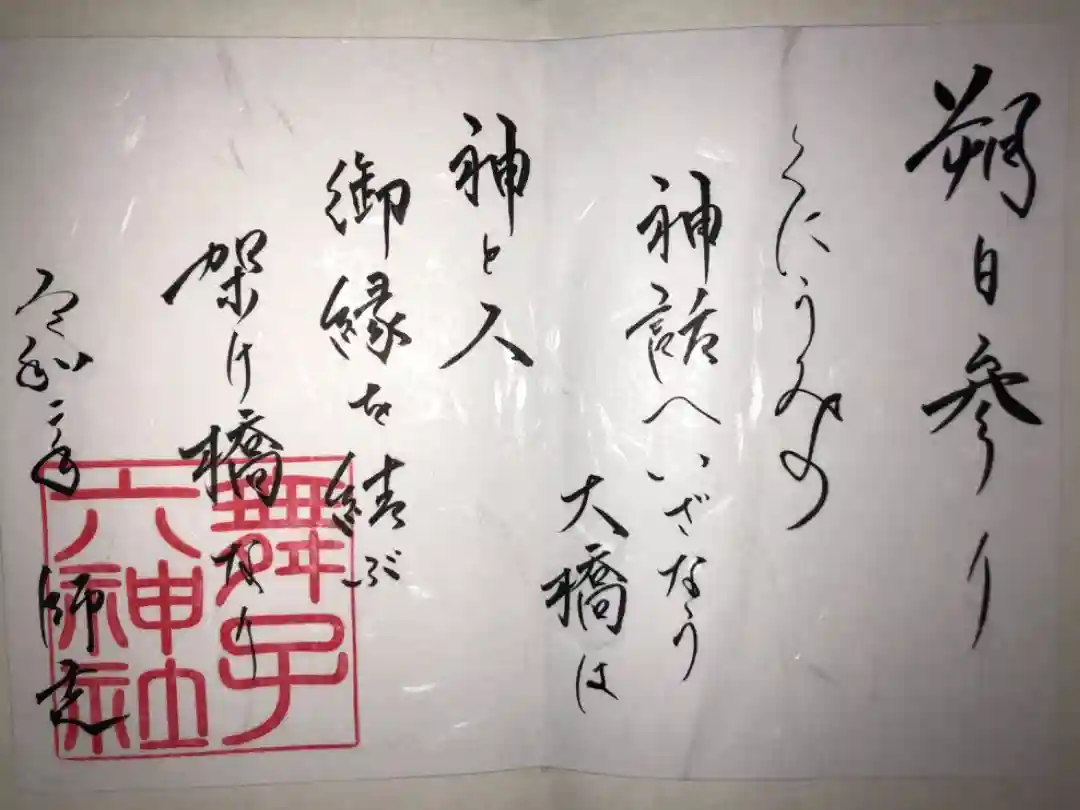 朔日参り
くにうみの
神話へいざなう
大橋は
神と人
御縁を結ぶ
架け橋なり
令和二年 師走
舞子
六神社